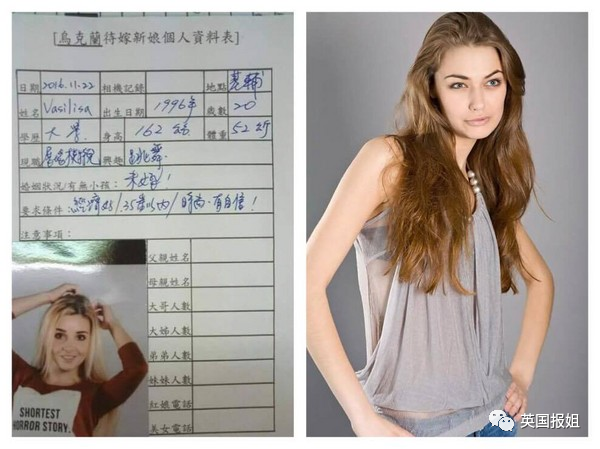 [烏克蘭待嫁新娘個人資料表]
日期 2016.11.22 相機記錄 地點
姓名 Vasilisa 出生日期 1996年 歲數 20
學歷 大學 身高 162 體重 52
現職 興趣 跳舞
婚姻狀況/有無小孩： 未婚！
要求條件 45/35 /時尚.有自信！
注意事項：
父親姓名
母親姓名
大哥人數
大姊人數
弟弟人數
妹妹人數
紅娘電話
美女電話
SHORTEST
HORROR STORY.
英国报姐